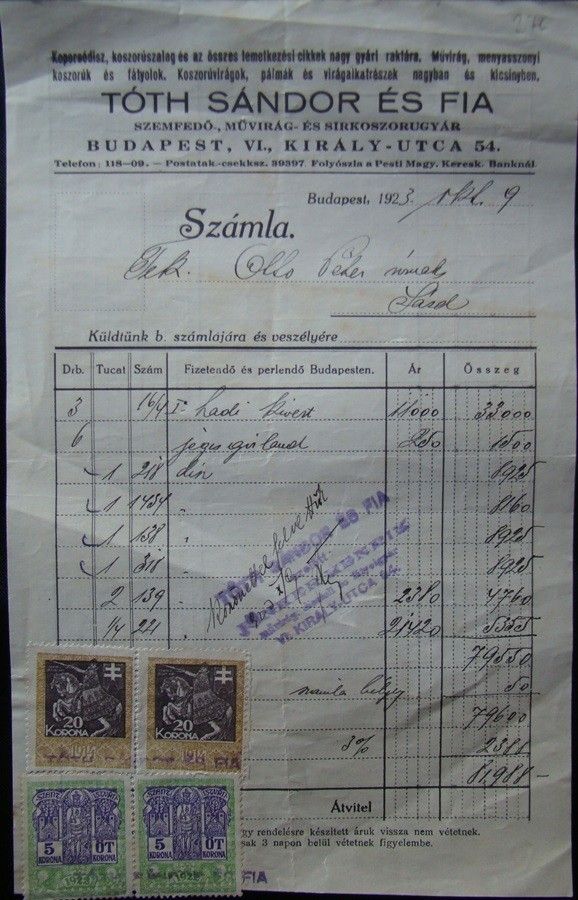 Koporsódísz, koszorúszalag és az összes temetkezési cikkek nagy gyári raktára. Művirág, menyasszonyi
koszorúk és fátyolok. Koszorúvirágok, pálmák és virágalkatrészek nagyban és kicsinyben.
TÓTH SÁNDOR ÉS FIA
SZEMFEDŐ-, MŰVIRÁG- ÉS SIRKOSZORUGYÁR
BUDAPEST, VI., KIRÁLY-UTCA 54.
Telefon: 118—09. — Postatak.-csekksz. 39397. Folyószla a Pesti Magy. Keresk. Banknál.
Budapest, 1923. okt. 9
Számla.
Tek. Otto Péter úrnak
Küldtünk b. számlájára és veszélyére
Drb. Tucat Szám Fizetendő és perlendő Budapesten. Ár Összeg
3 11000 33000
6 250 1500
1 218 8925
1 1434 8160
1 138 8925
1 318 8925
2 139 2380 4760
1/4 221 21420 5355
TÓTH SÁNDOR ÉS FIA
VI. KIRÁLY-UTCA 54.
79550
50
79600
3% 2388
81988
20 KORONA
20 KORONA
5 KORONA ÖT KORONA
5 KORONA ÖT KORONA
1923
ÉS FIA
Átvitel
gy rendelésre készitett áruk vissza nem vétetnek.
sak 3 napon belül vétetnek figyelembe.